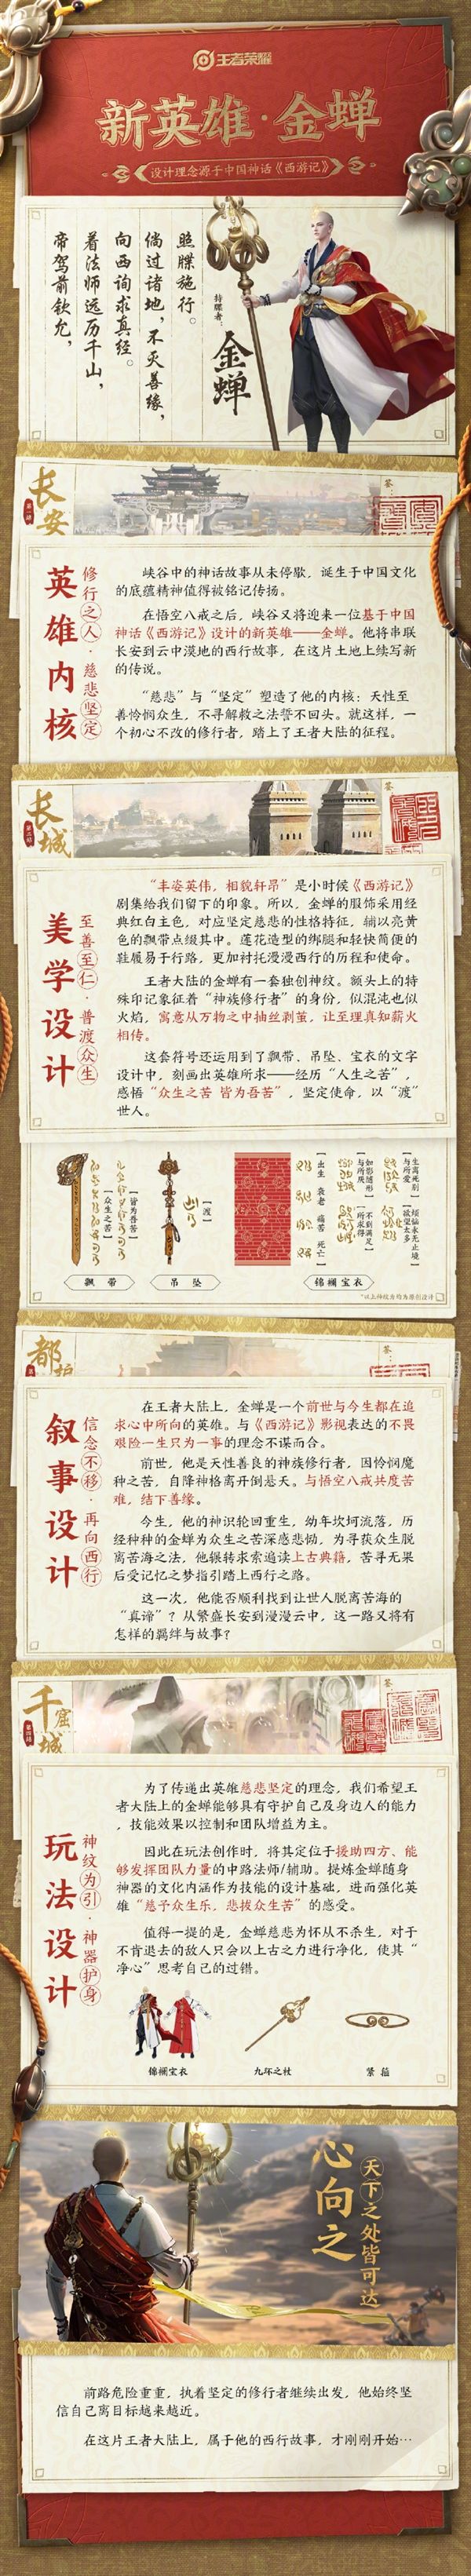 王者荣耀
新英雄·金蝉
设计理念源于中国神话《西游记》
照牒施行。
倘过诸地，不灭善缘，
向西询求真经。
着法师远历千山，
帝驾前钦允，
持牒者：
金蝉
长安
第一站
签：
英雄内核
修行之人·慈悲坚定
峡谷中的神话故事从未停歇，诞生于中国文化
的底蕴精神值得被铭记传扬。
在悟空八戒之后，峡谷又将迎来一位基于中国
神话《西游记》设计的新英雄——金蝉。他将串联
长安到云中漠地的西行故事，在这片土地上续写新
的传说。
“慈悲”与“坚定”塑造了他的内核：天性至
善怜悯众生，不寻解救之法誓不回头。就这样，一
个初心不改的修行者，踏上了王者大陆的征程。
长城
签：
美学设计
至善至仁·普渡众生
“丰姿英伟，相貌轩昂”是小时候《西游记》
剧集给我们留下的印象。所以，金蝉的服饰采用经
典红白主色，对应坚定慈悲的性格特征，辅以亮黄
色的飘带点缀其中。莲花造型的绑腿和轻快简便的
鞋履易于行路，更加衬托漫漫西行的历程和使命。
王者大陆的金蝉有一套独创神纹。额头上的特
殊印记象征着“神族修行者”的身份，似混沌也似
火焰，寓意从万物之中抽丝剥茧，让至理真知薪火
相传。
这套符号还运用到了飘带、吊坠、宝衣的文字
设计中，刻画出英雄所求——经历“人生之苦”，
感悟“众生之苦 皆为吾苦”，坚定使命，以“渡”
世人。
【众生之苦】
【皆为吾苦】
【渡】
出生 衰老 痛苦 死亡
飘带
吊坠
锦襕宝衣
*以上神纹为均为原创设计
都护
签：
叙事设计
信念不移·再向西行
在王者大陆上，金蝉是一个前世与今生都在追
求心中所向的英雄。与《西游记》影视表达的不畏
艰险一生只为一事的理念不谋而合。
前世，他是天性善良的神族修行者，因怜悯魔
种之苦，自降神格离开倒悬天。与悟空八戒共度苦
难，结下善缘。
今生，他的神识轮回重生，幼年坎坷流落，历
经种种的金蝉为众生之苦深感悲恸，为寻获众生脱
离苦海之法，他辗转求索遍读上古典籍，苦寻无果
后受记忆之梦指引踏上西行之路。
这一次，他能否顺利找到让世人脱离苦海的
“真谛”？从繁盛长安到漫漫云中，这一路又将有
怎样的羁绊与故事？
千窟城
第四站
签：
玩法设计
神纹为引·神器护身
为了传递出英雄慈悲坚定的理念，我们希望王
者大陆上的金蝉能够具有守护自己及身边人的能力
，技能效果以控制和团队增益为主。
因此在玩法创作时，将其定位于援助四方、能
够发挥团队力量的中路法师/辅助。提炼金蝉随身
神器的文化内涵作为技能的设计基础，进而强化英
雄“慈予众生乐，悲拔众生苦”的感受。
值得一提的是，金蝉慈悲为怀从不杀生，对于
不肯退去的敌人只会以上古之力进行净化，使其“
净心”思考自己的过错。
锦襕宝衣
九环之杖
紧箍
心向之
天下之处皆可达
前路危险重重，执着坚定的修行者继续出发，他始终坚
信自己离目标越来越近。
在这片王者大陆上，属于他的西行故事，才刚刚开始…